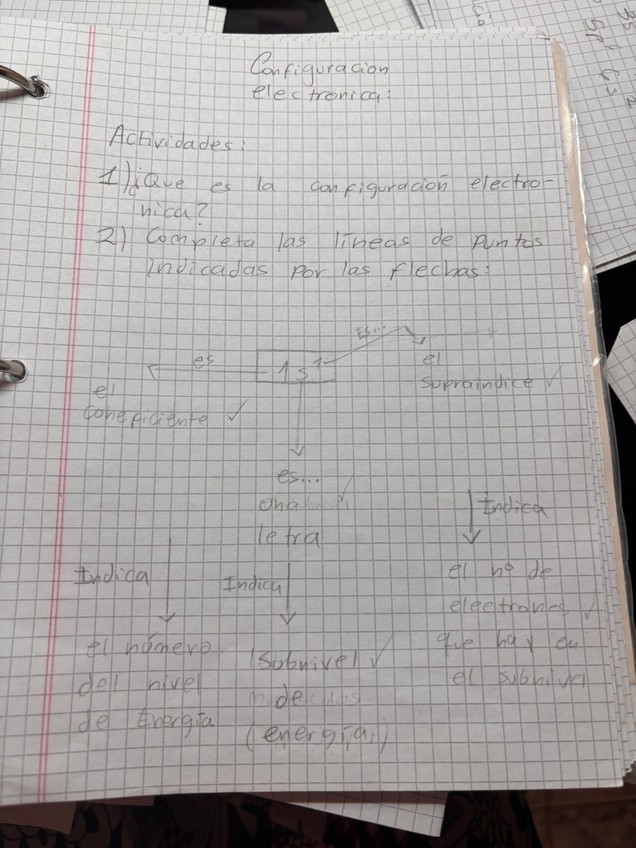 Configuracion
electronica:
Actividades:
1) ¿Que es la configuración electro-
nica?
2) Completa las líneas de puntos
indicadas por las flechas:
es
1s1
Es...
el
supraindice ✓
el
coneficiente ✓
es...
una ✓
letra
Indica
el número
del nivel
de Energía
Indica
Subnivel ✓
de
(energía)
Indica
el nº de
electrones ✓
que hay en
el subnivel